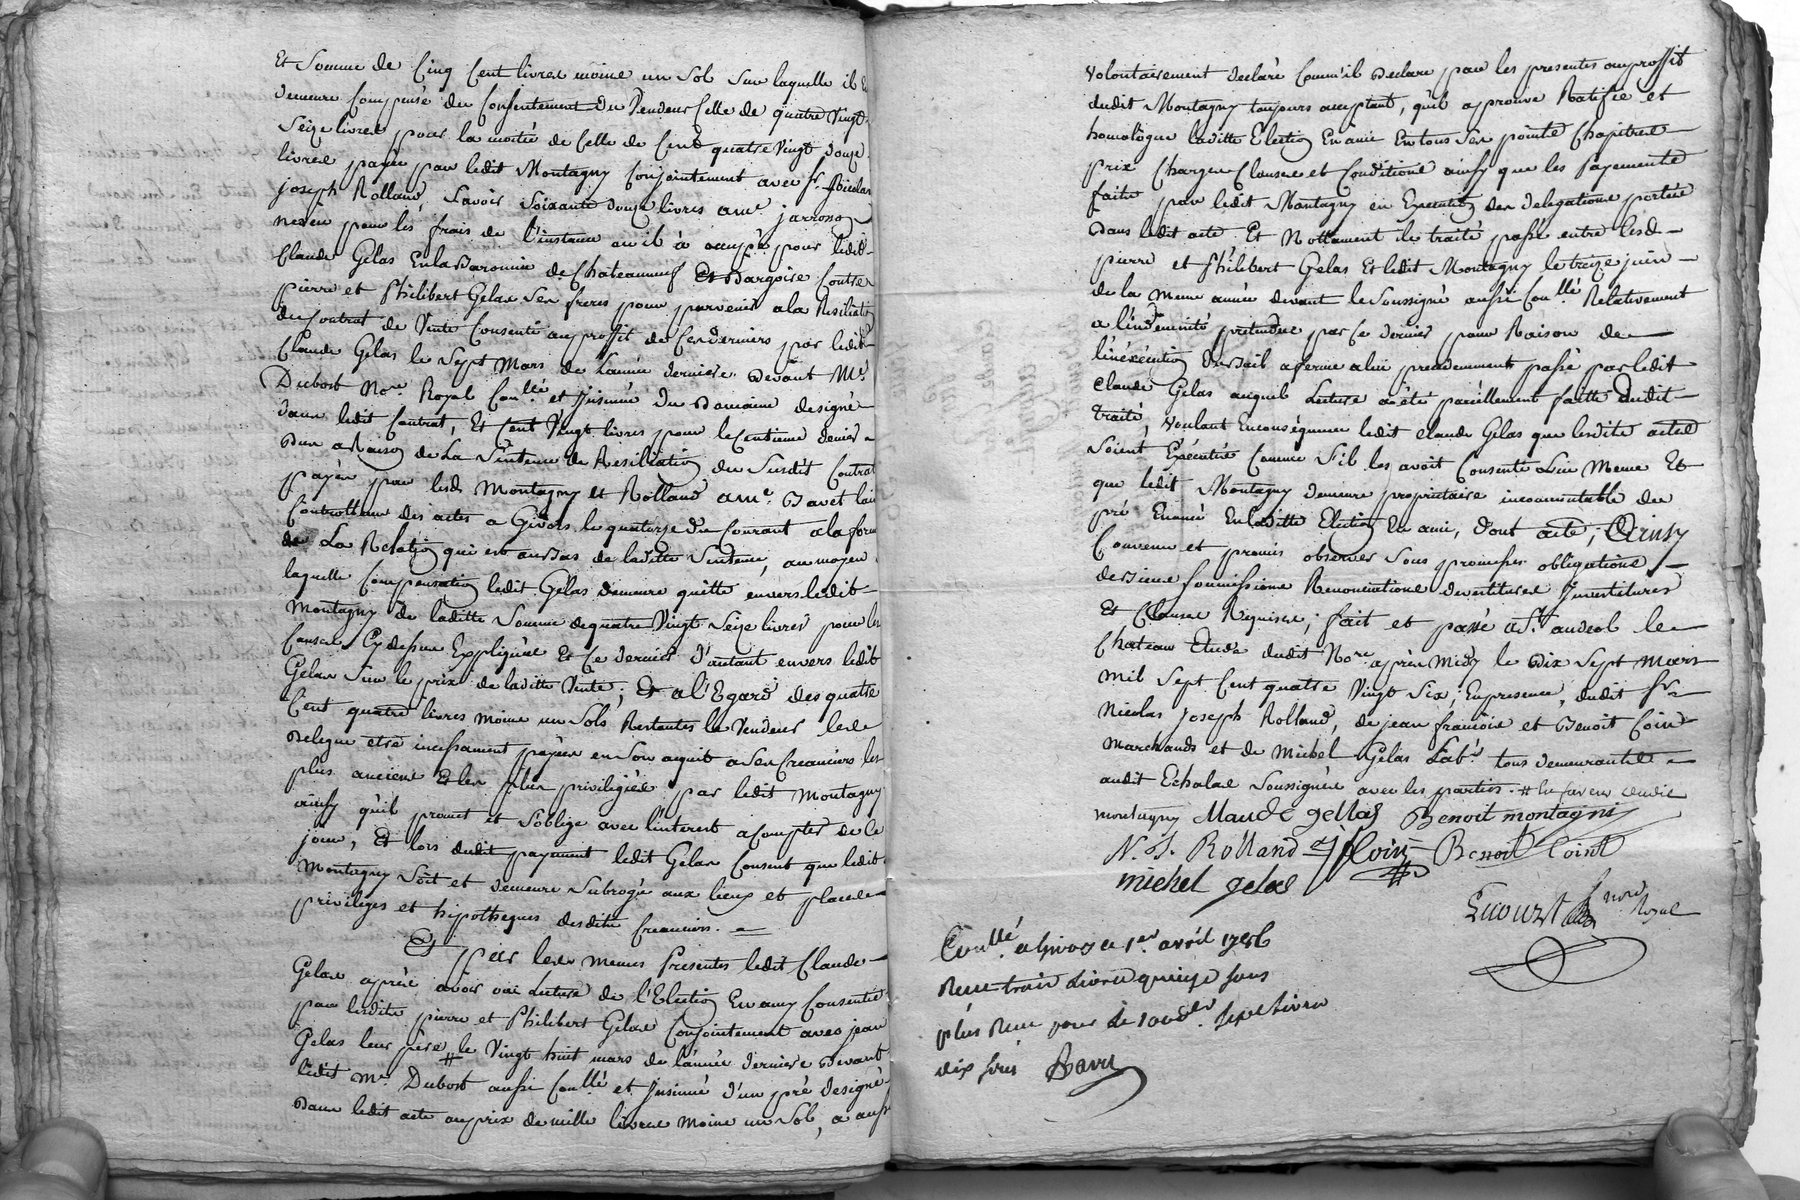 Et Somme de Cinq Cent livres moins un Sol Sur laquelle il
demeure Compensé du Consentement du Vendeur Celle de quatre Vingt
Seize livres pour la moitié de Celle de Cent quatre Vingt douze
livres payée par ledit Montagny Conjointement avec Sr. Nicolas
joseph Rolland, Savoir Soixante douze livres a me. jarrosson
neveu pour les frais de l'instance ou il à occupé pour ledit
Claude Gelas En la Baronnie de Chateauneuf Et Dargoire Contre
pierre et Philibert Gelas Ses freres pour parvenir a la Resiliation
du Contrat de Vente Consenti au proffit de Ces derniers par ledit
Claude Gelas le Sept Mars de L'année derniere devant Me.
Dubost Nore. Royal Conllé. et jnsinué du Domaine designé
dans ledit Contrat, Et Cent Vingt livres pour le Centieme denier
Dun a Raison de La Sentence de Resiliation du Susdit Contrat
payée par lesds. Montagny et Rolland a me. Bavet
Controlleur des actes a Givors le quatorze du Courant a la forme
de La Relation qui est au bas de laditte Sentence, au moyen
laquelle Compensation ledit Gelas demeure quitte envers ledit
Montagny de laditte Somme de quatre Vingt Seize livres pour les
Causes Cy dessus Expliquées Et Ce dernier d'autant envers ledit
Gelas Sur le prix de laditte Vente; Et a l'Egard des quatre
Cent quatre livres moins un Sols Restantes le Vendeur les
Delegue etre incessament payées en Son aquit a Ses Creanciers les
plus anciens Et les plus priviligiés par ledit Montagny
ainsy qu'il promet et S'oblige avec l'interest a Compter de Ce
jour, Et lors dudit payement ledit Gelas Consent que ledit
Montagny Soit et demeure Subrogé aux lieux et places
privileges et hipotheques desdits Creanciers.
Et par les memes Presentes ledit Claude
Gelas après avoir oui Lecture de l'Election En amy Consentie
par lesdits pierre et Philibert Gelas Conjointement avec jean
Gelas leur pere # le Vingt huit mars de l'année derniere devant
ledit Me. Dubost aussi Conllé. et jnsinué d'un pré designé
Dans ledit acte au prix de mille livres moins un Sol, a aussi
volontairement declaré Comm'il Declare par les presentes au proffit
dudit Montagny toujours acceptant, quil approuve Ratifie et
homologue laditte Election En amie En tous Ses points Chapitres
prix Charges Clauses et Conditions ainsy que les Payements
faits par ledit Montagny en Execution des delegations portées
Dans ledit acte Et Nottament le traité passé entre lesd.
pierre et Philibert Gelas Et ledit Montagny le treize juin
de la meme année devant le Soussigné aussi Conllé. Relativement
a l'indemnité pretendue par Ce dernier pour Raison de
l'inéxécution Du Bail a ferme a lui precedemment passé par ledit
Claude Gelas auquel Lecture a été pareillement faitte dudit
traité, Voulant En conséquence ledit Claude Gelas que lesdits actes
Soient Exécutés Comme S'il les avoit Consenti Lui Meme Et
que ledit Montagny demeure proprietaire incommutable du
pré Enoncé En laditte Election En amie, Dont acte, Ainsy
Convenu et promis observer Sous promesses obligations
de biens Soumissions Renonciations devestitures Jnvestitures
Et Clauses Requises; fait et passé a St. andeol le
Chateau Etude dudit Nore. après Midy le Dix Sept Mars
Mil Sept Cent quatre Vingt Six, En presence dudit Sr.
Nicolas joseph Rolland, de jean francois et Benoit Coint
Marchands et de Michel Gelas Labr. tous demeurants
audit Echalas Soussignés avec les parties. # En faveur dudit
montagny Claude gellas Benoit montagny
N. J. Rolland J f Coint Benoit Coint
michel gelas
nore. Royal
Conllé. a Givors le 1er. avril 1786
Recu trois Livres quinze sous
plus Recu pour le 100e. der. Sept Livres
dix sous Bavet